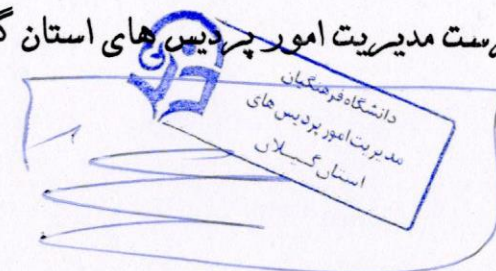 رست مدیریت امور پردیس های استان گ
دانشگاه فرهنگیان
مدیریت امور پردیس های
استان گیلان